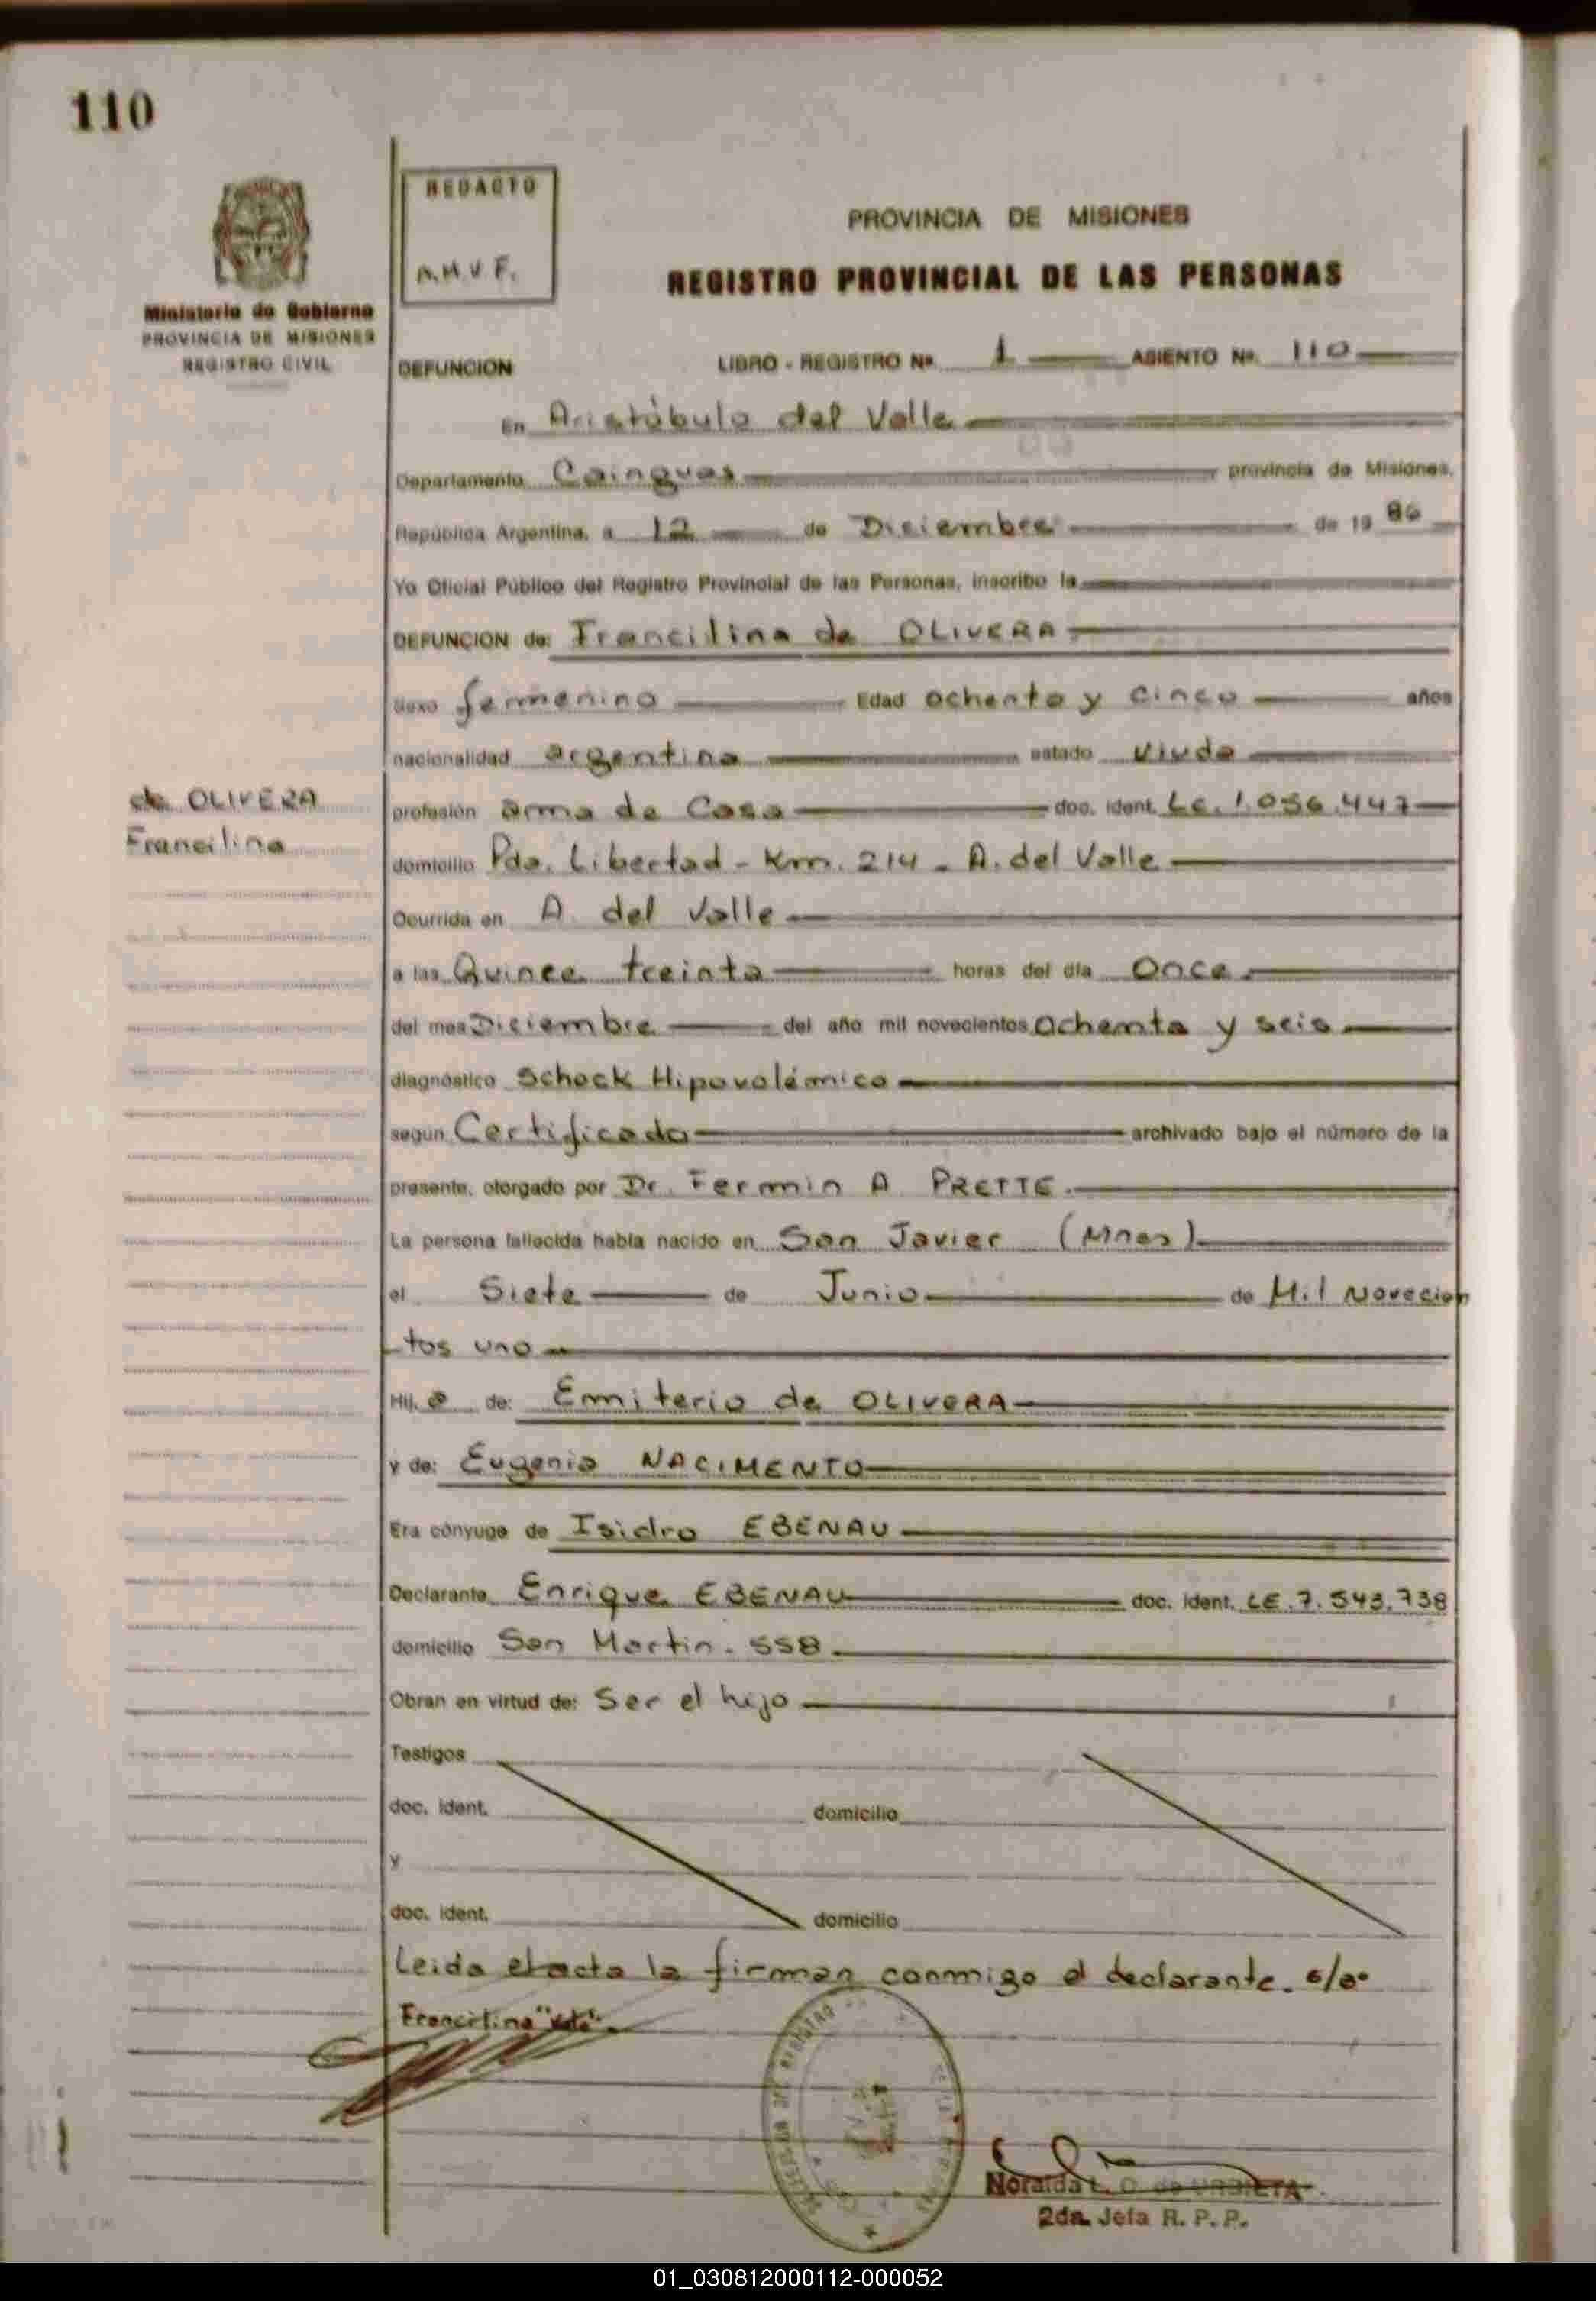 110
REDACTO
A.M.V.F.
Ministerio de Gobierno
PROVINCIA DE MISIONES
REGISTRO CIVIL
PROVINCIA DE MISIONES
REGISTRO PROVINCIAL DE LAS PERSONAS
DEFUNCION LIBRO - REGISTRO Nº 1 ASIENTO Nº 110
En Aristóbulo del Valle
Departamento Cainguas provincia de Misiones.
República Argentina, a 12 de Diciembre de 19 86
Yo Oficial Público del Registro Provincial de las Personas, inscribo la
DEFUNCION de: Francilina de OLIVERA
sexo femenino Edad ochenta y cinco años
nacionalidad argentina estado viuda
de OLIVERA
Francilina
profesión ama de Casa doc. ident. LC. 1.056.447
domicilio Pda. Libertad - Km. 214 - A. del Valle
Ocurrida en A. del Valle
a las Quince treinta horas del día Once
del mes Diciembre del año mil novecientos Ochenta y seis
diagnóstico Schock Hipovolémico
según Certificado archivado bajo el número de la
presente, otorgado por Dr. Fermin A PRETTE.
La persona fallecida había nacido en San Javier (Mnes)
el Siete de Junio de Mil Novecien
tos uno
Hij a de: Emiterio de OLIVERA
y de: Eugenia NACIMENTO
Era cónyuge de Isidro EBENAU
Declarante Enrique EBENAU doc. ident. LE. 7.543.738
domicilio San Martin - 558
Obran en virtud de: Ser el hijo
Testigos
doc. ident. domicilio
y
doc. ident. domicilio
Leida el acta la firman conmigo el declarante. s/ao
Francilina "Vale".
Noraida L. C. de URBIETA
2da. Jefa R. P. P.
01_030812000112-000052